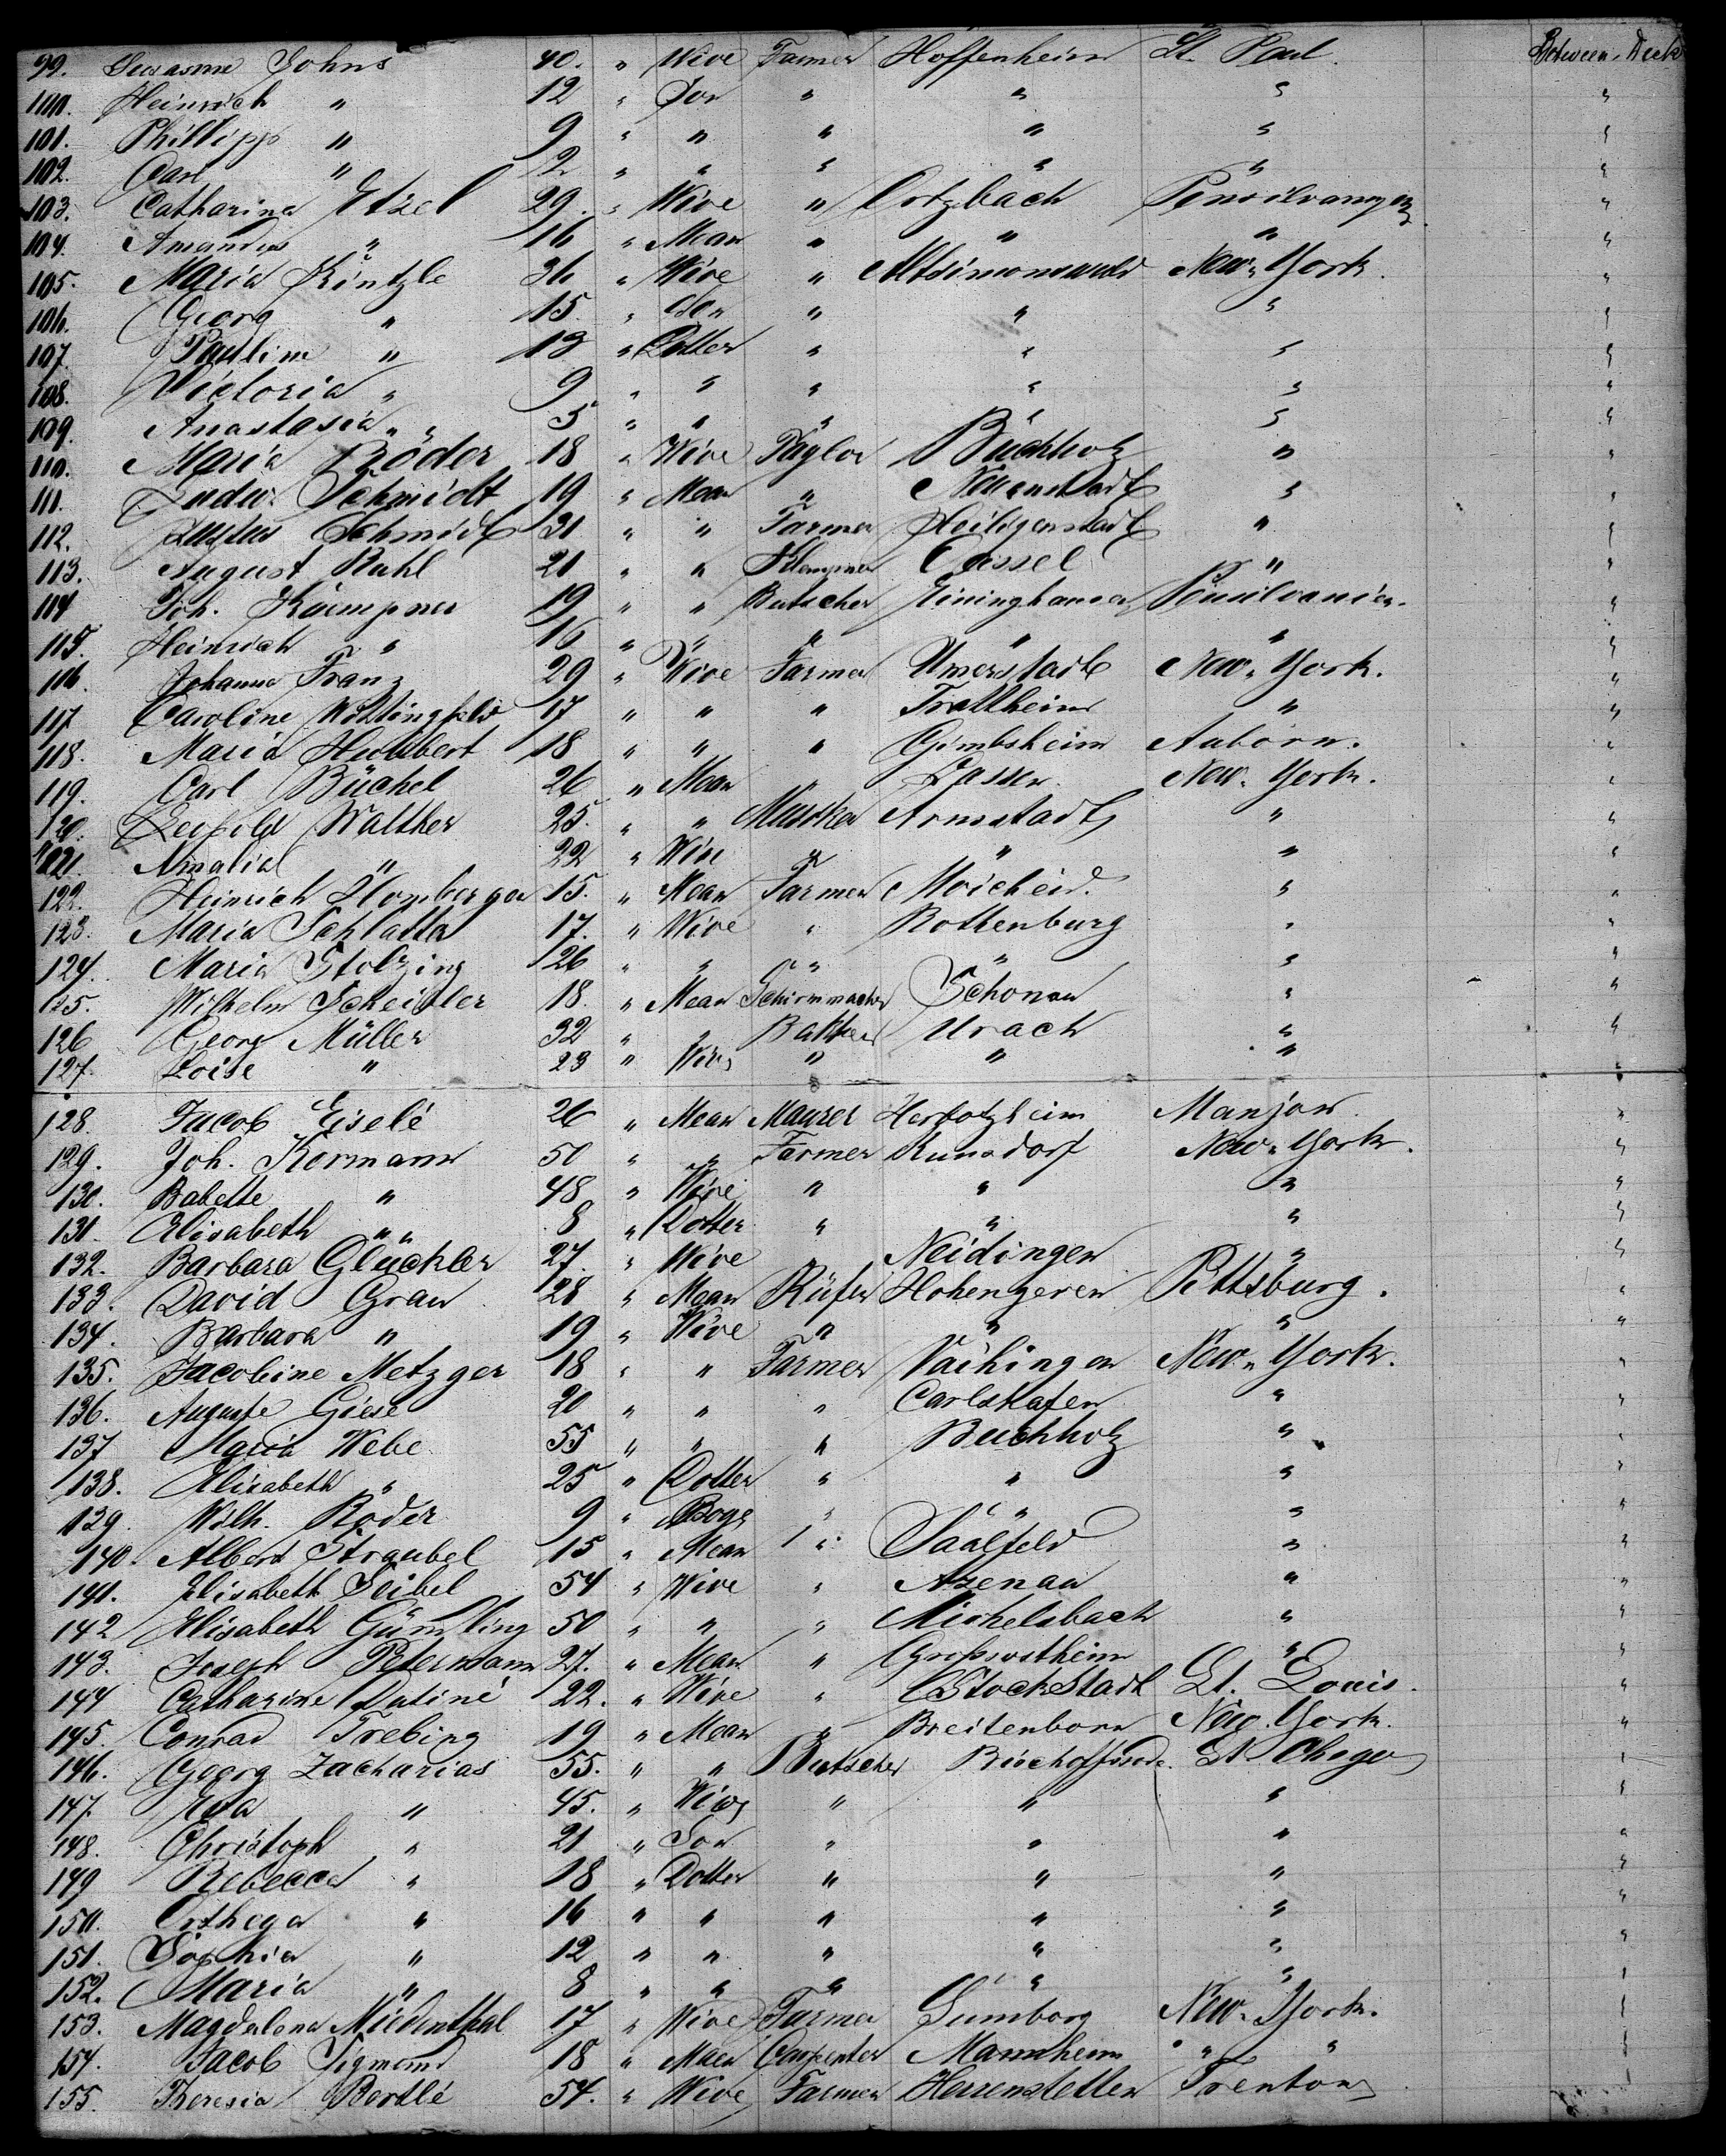 99. Susanne Johns 40. " Wive Farmer Hoffenheim St. Paul. Between-Deck
100. Heinrich " 12 " Son " " " "
101. Phillipp " 9 " " " " " "
102. Carl " 2 " " " " " "
103. Catharina Etzel 29. " Wive " Ortzbach "
104. Amandus " 16 " Mean " " " "
105. Maria Kintzle 36 " Wive " Altsimonswald New-York. "
106. Georg " 15. " Son " " " "
107. Paulina " 13 " Dotter " " " "
108. Victoria " 9 " " " " " "
109. Anastasia " " 5 " " " " " "
110. Maria Röder 18 " Wive Taylor Buchholz " "
111. Ludw. Schmidt 19 " Mean " Neuenstadt " "
112. Justus Schmidt 21 " " Farmer Heiligenstadt " "
113. August Ruhl 21 " " Klempner Cassel " "
114 Joh. Kaempner 19 " " Butscher Pensilvanien. "
115. Heinrich " 16 " " " " " "
116. Johanna Franz 29 " Wive Farmer Umerstadt New-York. "
117. Caroline 17 " " " " "
118. Maria 18 " " " Gimbsheim Auborn. "
119. Carl Büchel 26 " Mean " New-York. "
120. Leopold Walther 25. " " Armstadt " "
121. Amalia " 22 " Wive " " " "
122. Heinrich Homberger 15. " Mean Farmer " "
123. Maria Schlatter 17. " Wive " Rottenburg " "
124. Maria Stolzing 26 " " " " " " "
125. Wilhelm Scheidler 18. " Mean Schirmmacher Schonau " "
126 Georg Müller 32 " " Urach " "
127. Loise " 23 " Wive " " " "
128. Jacob Eiselé 26 " Mean Maurer Herbolzheim "
129. Joh. Kormann 50 " " Farmer Kunsdorf New-York. "
130. Babette " 48 " Wive " " " "
131. Elisabeth " " 8 " Dotter " " " "
132. Barbara Gluckler 27. " Wive " Neidingen " "
133. David Grau 28 " Mean Küfer Hohengeren Pittsburg. "
134. Barbara " 19 " Wive " " " "
135. Jacobine Metzger 18 " " Farmer Vaihingen New-York. "
136. Auguste Giese 20 " " " Carlshafen " "
137 Maria Webe 55 " " " Buchholz " "
138. Elisabeth " 25 " Dotter " " " "
139. Wilh. Roder 9 " Boge " " " " "
140. Albert Straubel 15 " Mean " Saalfeld " "
141. Elisabeth Seibel 54 " Wive " Azenau " "
142 Elisabeth Gümbling 50 " " " Michelsbach " "
143. Joseph Petermann 27. " Mean " Grossostheim " "
144 Catharine Datiné 22. " Wive " Stockstadt St. Louis. "
145. Conrad Trebing 19 " Mean " Breitenborn New-York. "
146. Georg Zacharias 55. " " Butscher "
147. Eva " 45. " Wive " " " "
148. Christoph " 21 " Son " " " "
149 Rebecca " 18 " Dotter " " " "
150. " 16 " " " " " "
151. Sophia " 12 " " " " " "
152. Maria " 8 " " " " " " "
153. Magdalena Miedenthal 17 " Wive Farmer New-York. "
154. Jacob Sigmond 18 " Mean Carpenter Mannheim " " "
155. Theresia Bertlé 54. " Wive Farmer Herrenstetten Trenton "